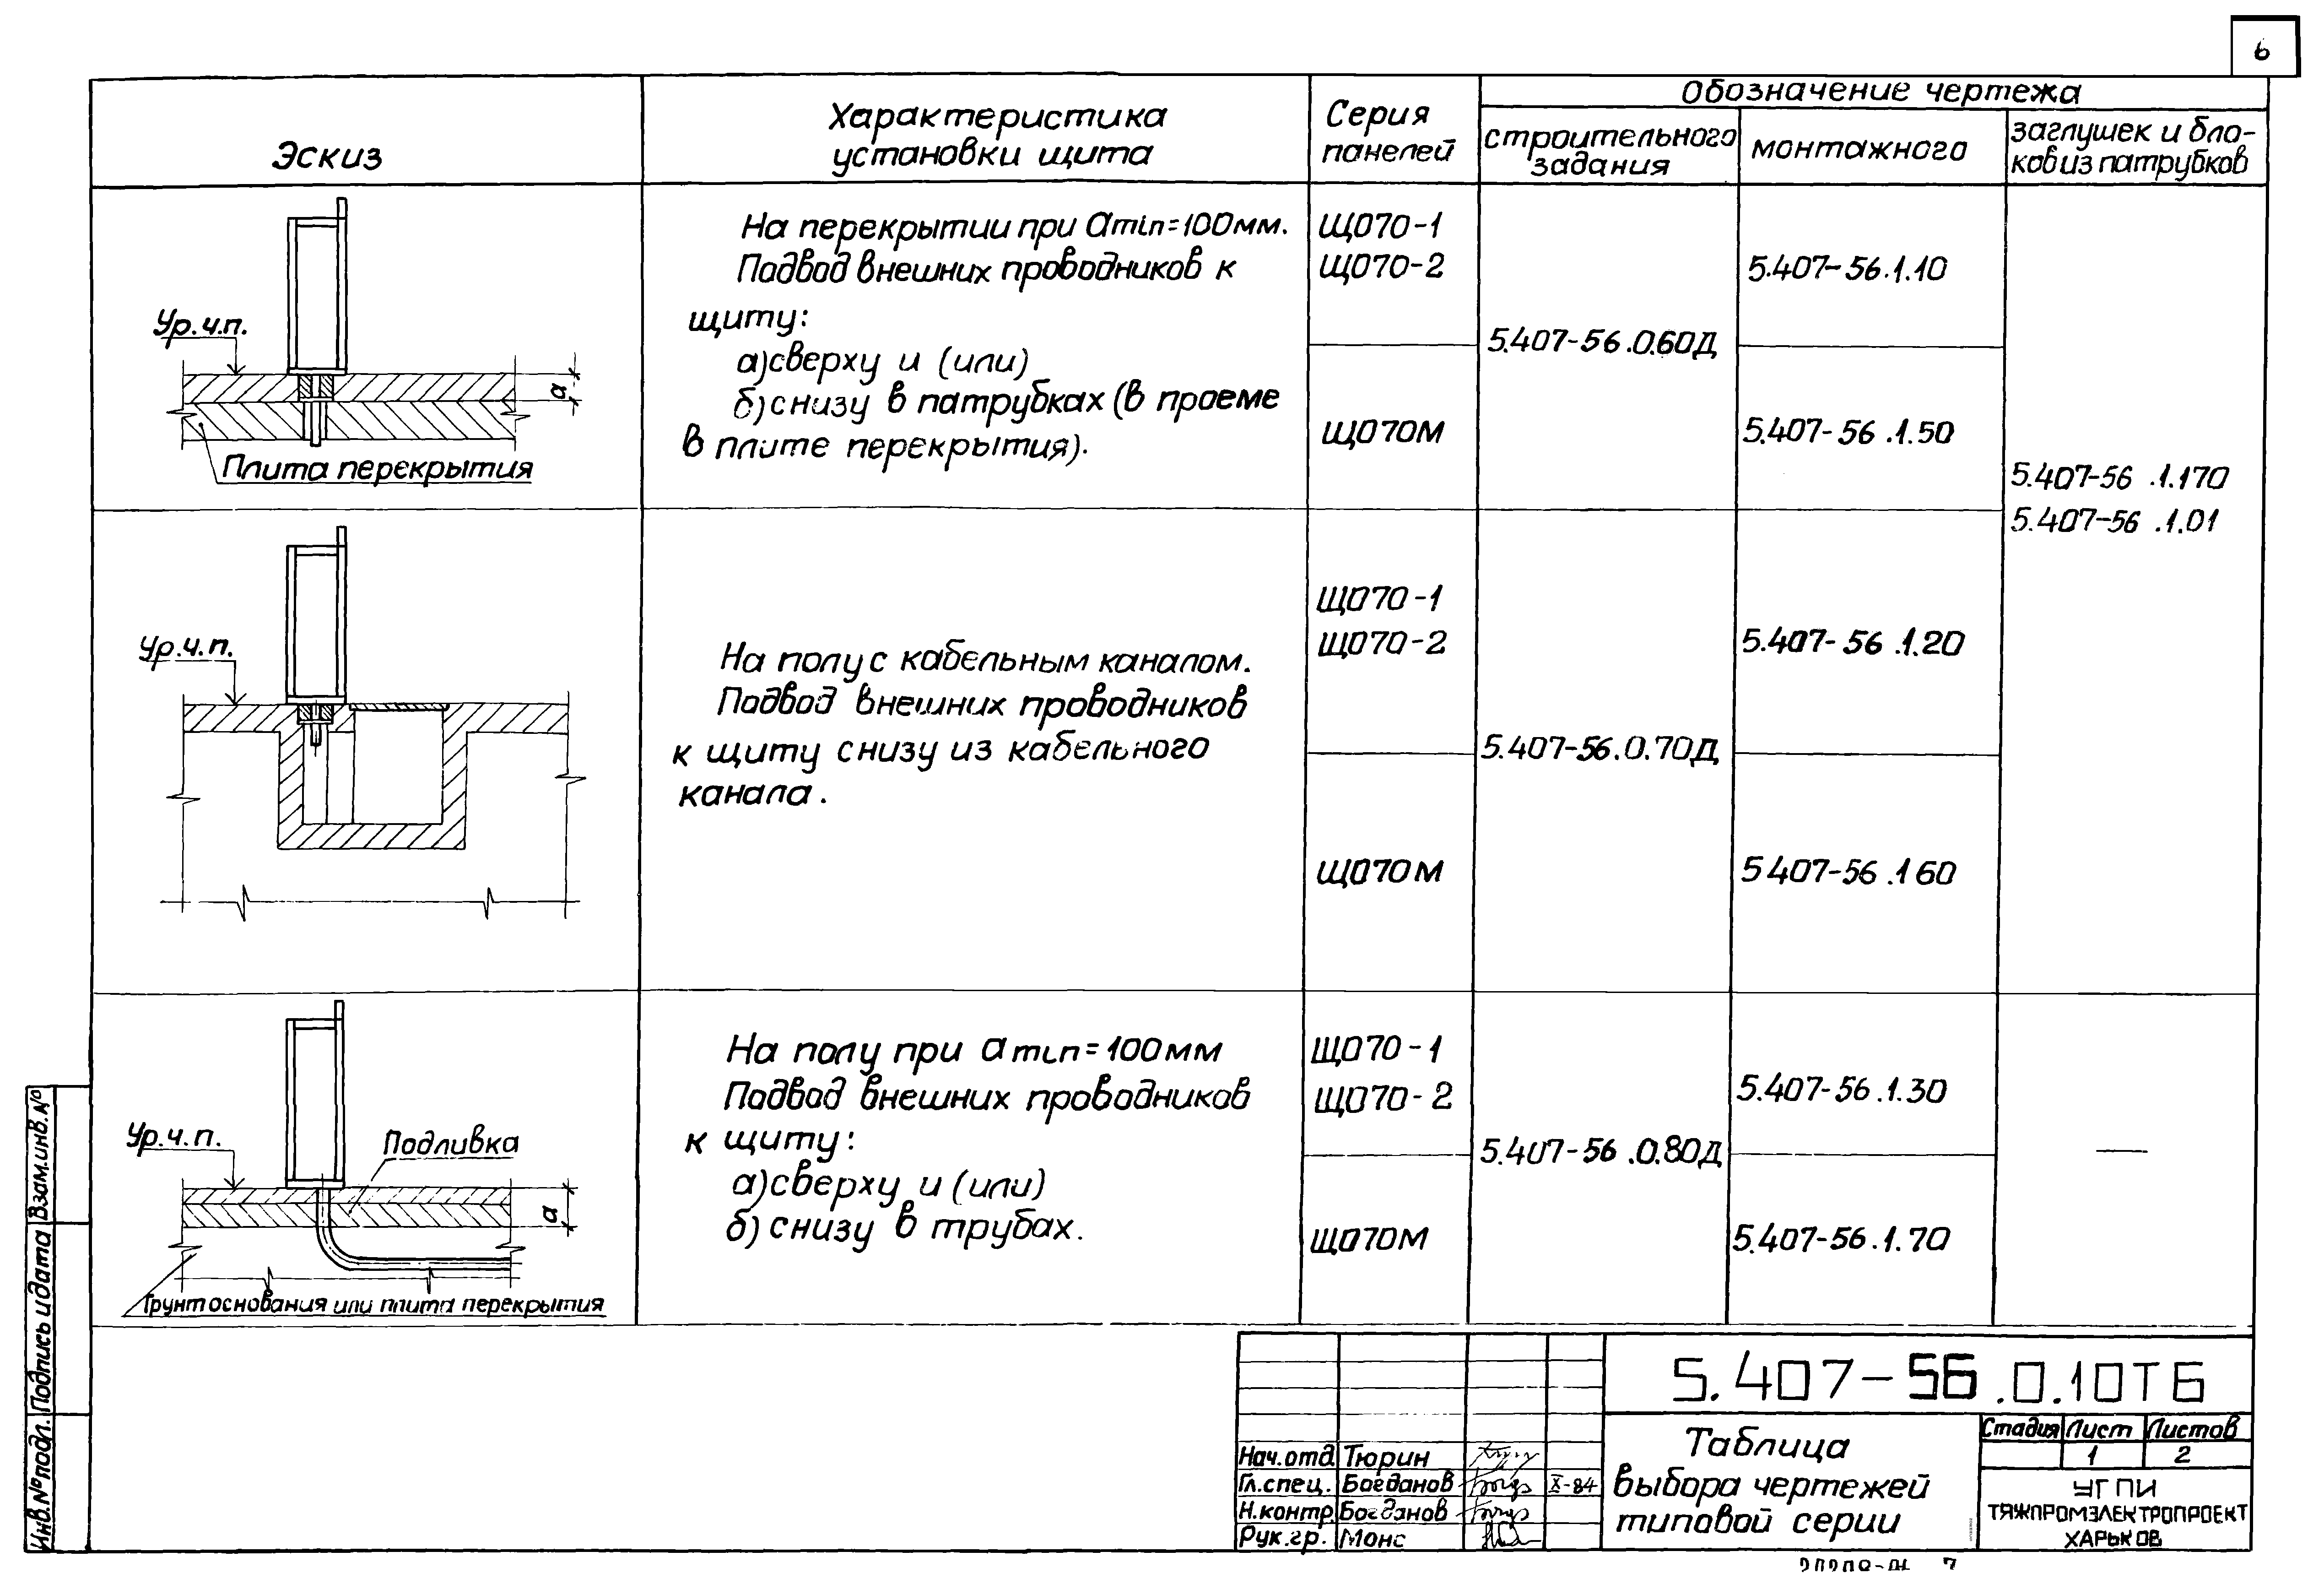 6
Эскиз
Характеристика
установки щита
Серия
панелей
Обозначение чертежа
строительного
задания
монтажного
заглушек и бло-
ков из патрубков
Ур.ч.п.
а
Плита перекрытия
На перекрытии при amin=100мм.
Подвод внешних проводников к
щиту:
а) сверху и (или)
б) снизу в патрубках (в проеме
в плите перекрытия).
ЩО70-1
ЩО70-2
ЩО70М
5.407-56.0.60Д
5.407-56.1.10
5.407-56.1.50
5.407-56.1.170
5.407-56.1.01
Ур.ч.п.
На полу с кабельным каналом.
Подвод внешних проводников
к щиту снизу из кабельного
канала.
ЩО70-1
ЩО70-2
ЩО70М
5.407-56.0.70Д
5.407-56.1.20
5 407-56.1 60
Ур.ч.п.
Подливка
а
Грунт основания или плита перекрытия
На полу при amin=100мм
Подвод внешних проводников
к щиту:
а) сверху и (или)
б) снизу в трубах.
ЩО70-1
ЩО70-2
ЩО70М
5.407-56.0.80Д
5.407-56.1.30
5.407-56.1.70
—
Взам.инв.№
Подпись и дата
Инв.№ подл.
5.407-56.0.10ТБ
Нач.отд. Тюрин
Гл.спец. Богданов X-84
Н.контр. Богданов
Рук.гр. Монс
Таблица
выбора чертежей
типовой серии
Стадия Лист Листов
1 2
УГПИ
ТЯЖПРОМЭЛЕКТРОПРОЕКТ
ХАРЬКОВ
7